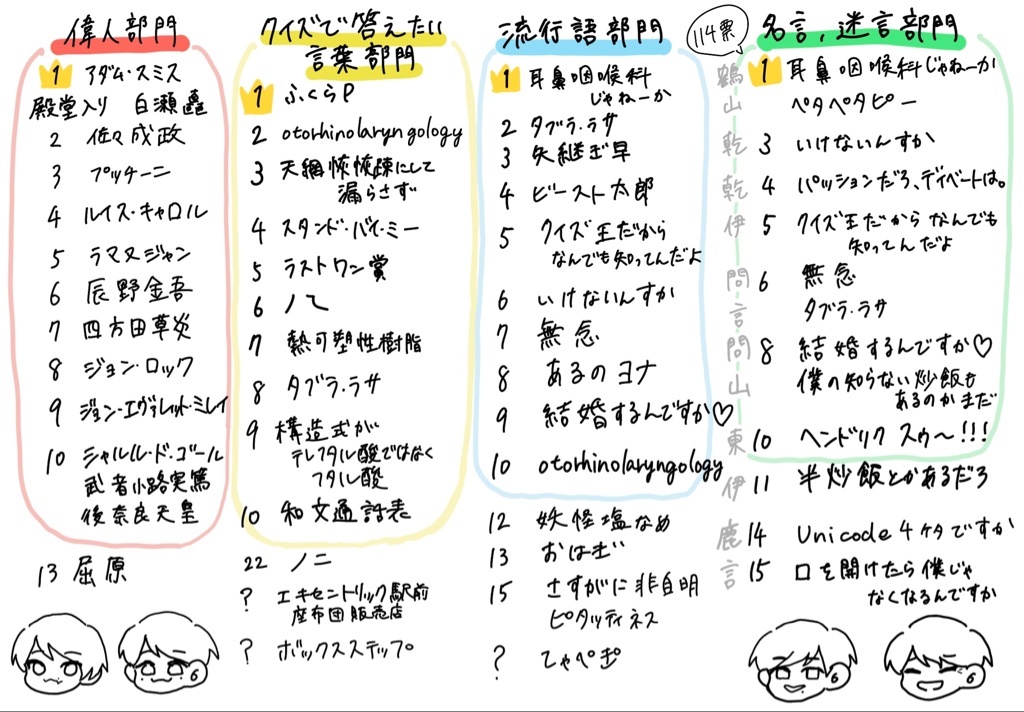 偉人部門
1 アダム・スミス
殿堂入り 白瀬矗
2 佐々成政
3 プッチーニ
4 ルイス・キャロル
5 ラマヌジャン
6 辰野金吾
7 四方田草炎
8 ジョン・ロック
9 ジョン・エヴァレット・ミレイ
10 シャルル・ド・ゴール
武者小路実篤
後奈良天皇
13 屈原
クイズで答えたい
言葉部門
1 ふくらP
2 otorhinolaryngology
3 天網恢恢疎にして
漏らさず
4 スタンド・バイ・ミー
5 ラストワン賞
6 ノ乀
7 熱可塑性樹脂
8 タブラ・ラサ
9 構造式が
テレフタル酸ではなく
フタル酸
10 和文通話表
22 ノニ
? エキセントリック駅前
座布団販売店
? ボックスステップ
流行語部門
1 耳鼻咽喉科
じゃねーか
2 タブラ・ラサ
3 矢継ぎ早
4 ビースト太郎
5 クイズ王だから
なんでも知ってんだよ
6 いけないんすか
7 無念
8 あるのヨナ
9 結婚するんですか♡
10 otorhinolaryngology
12 妖怪塩なめ
13 おはぎ
15 さすがに非自明
ピタッティネス
? てゃぺぎ
114票
名言、迷言部門
鶴 1 耳鼻咽喉科じゃねーか
山 ペタペタピー
乾 3 いけないんすか
乾 4 パッションだろ、ディベートは。
伊 5 クイズ王だからなんでも
知ってんだよ
問 6 無念
言 タブラ・ラサ
問 8 結婚するんですか♡
山 僕の知らない炒飯も
あるのかまだ
東 10 ヘンドリク スゥ〜!!!
伊 11 半炒飯とかあるだろ
鹿 14 Unicode4ケタですか
言 15 口を開けたら僕じゃ
なくなるんですか
6
6
6